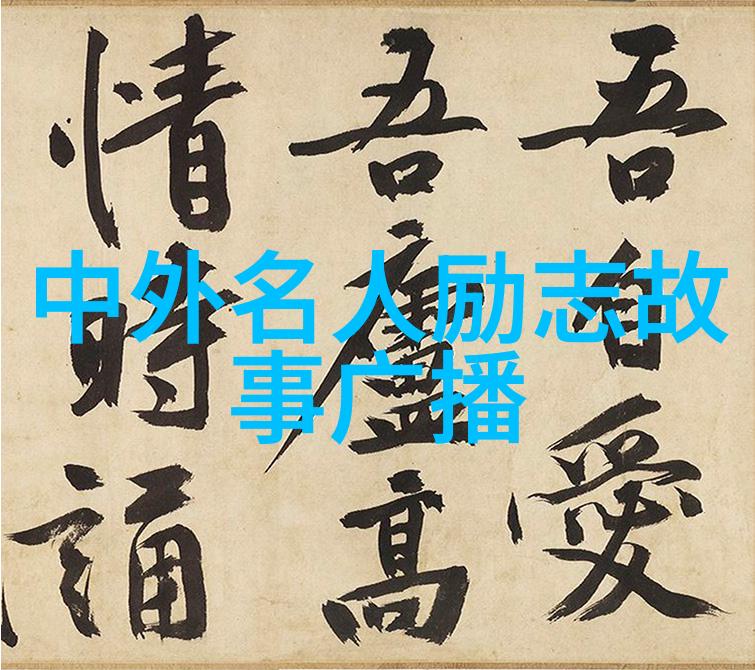 吾自愛
吾廬高
情時誦
中外名人励志故
事广播